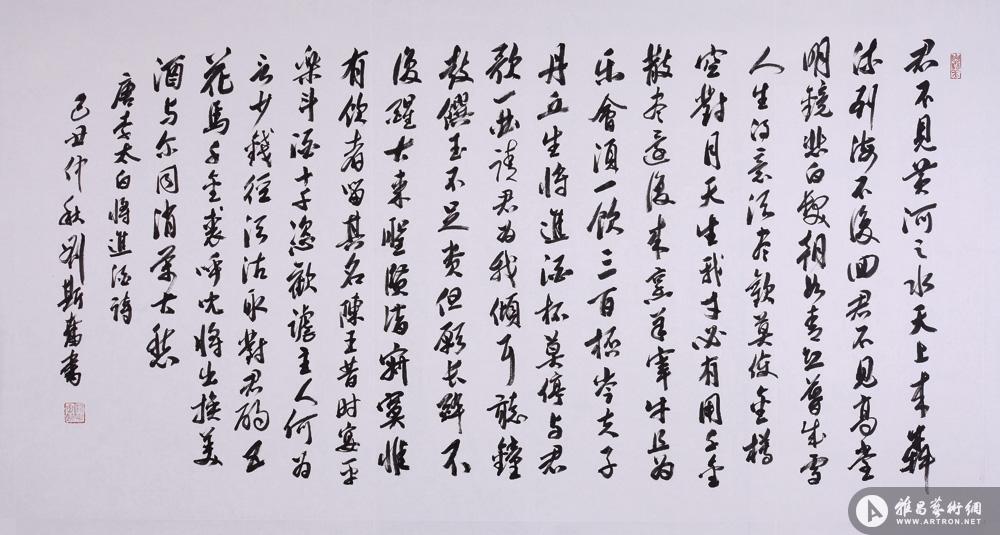 君不見黄河之水天上来奔
流到海不復回君不見高堂
明鏡悲白髮朝如青丝暮成雪
人生得意须尽歡莫使金樽
空對月天生我才必有用千金
散尽还復来烹羊宰牛且为
乐會须一飲三百杯岑夫子
丹丘生将進酒杯莫停与君
歌一曲请君为我傾耳聽鐘
鼓饌玉不足贵但願长醉不
復醒古来聖贤皆寂寞惟
有飲者留其名陳王昔时宴平
樂斗酒十千恣歡謔主人何为
言少錢径须沽取對君酌五
花馬千金裘呼儿将出换美
酒与尔同消萬古愁
唐李太白将進酒詩
己丑仲秋劉斯奮書
雅昌藝術網
WWW.ARTRON.NET